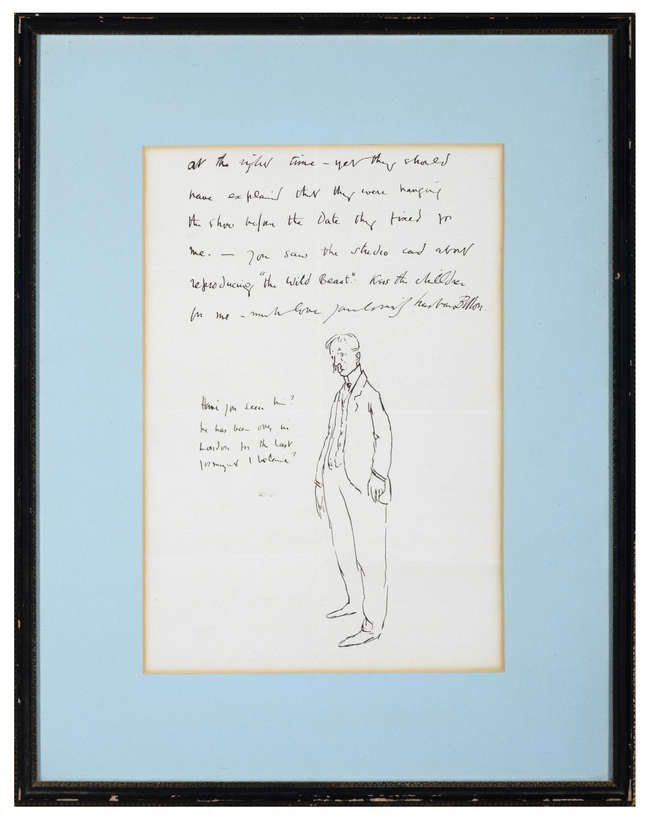 at the right time – yet they should
have explained that they were hanging
the show before the Date they fixed for
me. — you saw the studio card about
reproducing "the Wild Beast". Kiss the children
for me – much love your loving husband Billy
Have you seen him?
he has been over in
London for the last
fortnight I believe?